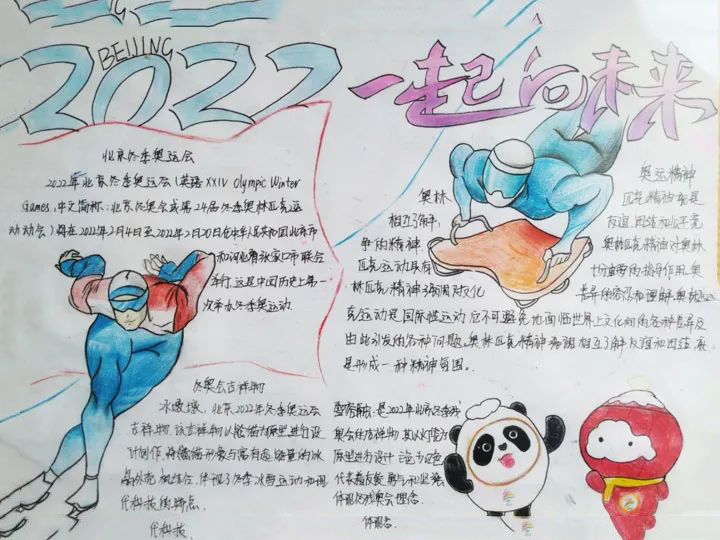 BEIJING
2022
一起向未来
北京冬季奥运会
2022年北京冬季奥运会(英语XXIV Olympic Winter
Games,中文简称:北京冬奥会或第24届冬季奥林匹克运
动会)将在2022年2月4日至2022年2月20日在中华人民共和国北京市
和河北省张家口市联合
举行.这是中国历史上第一
次举办冬季奥运动
奥运精神
奥林 匹克精神就是
相互了解, 友谊、团结和公平竞
争的精神 奥林匹克精神对奥林
匹克运动具有 十分重要的指导作用.奥
林匹克精神强调对文化 差异的容忍和理解.奥林匹
克运动是国际性运动,它不可避免地面临世界上文化间的各种差异及
由此引发的各种问题.奥林匹克精神强调相互了解友谊和团结,
是形成一种精神氛围.
冬奥会吉祥物
冰墩墩,北京2022年冬季奥运会
吉祥物.该吉祥物以熊猫为原型进行设
计创作.将熊猫形象与富有超能量的冰
晶外壳相结合,体现了冬季冰雪运动和现
代科技的特点.
代科技.
雪容融,是2022年北京冬季残
奥会的吉祥物.其以灯笼为
原型进行设计
代表着友爱、勇气和坚强,
体现冬残奥会理念.
体现